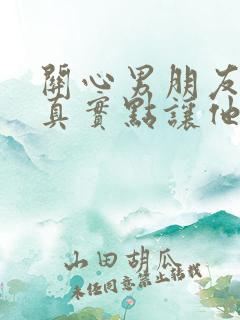 關心男朋友
真實點讓他
山田胡瓜
未任同意禁止轉載